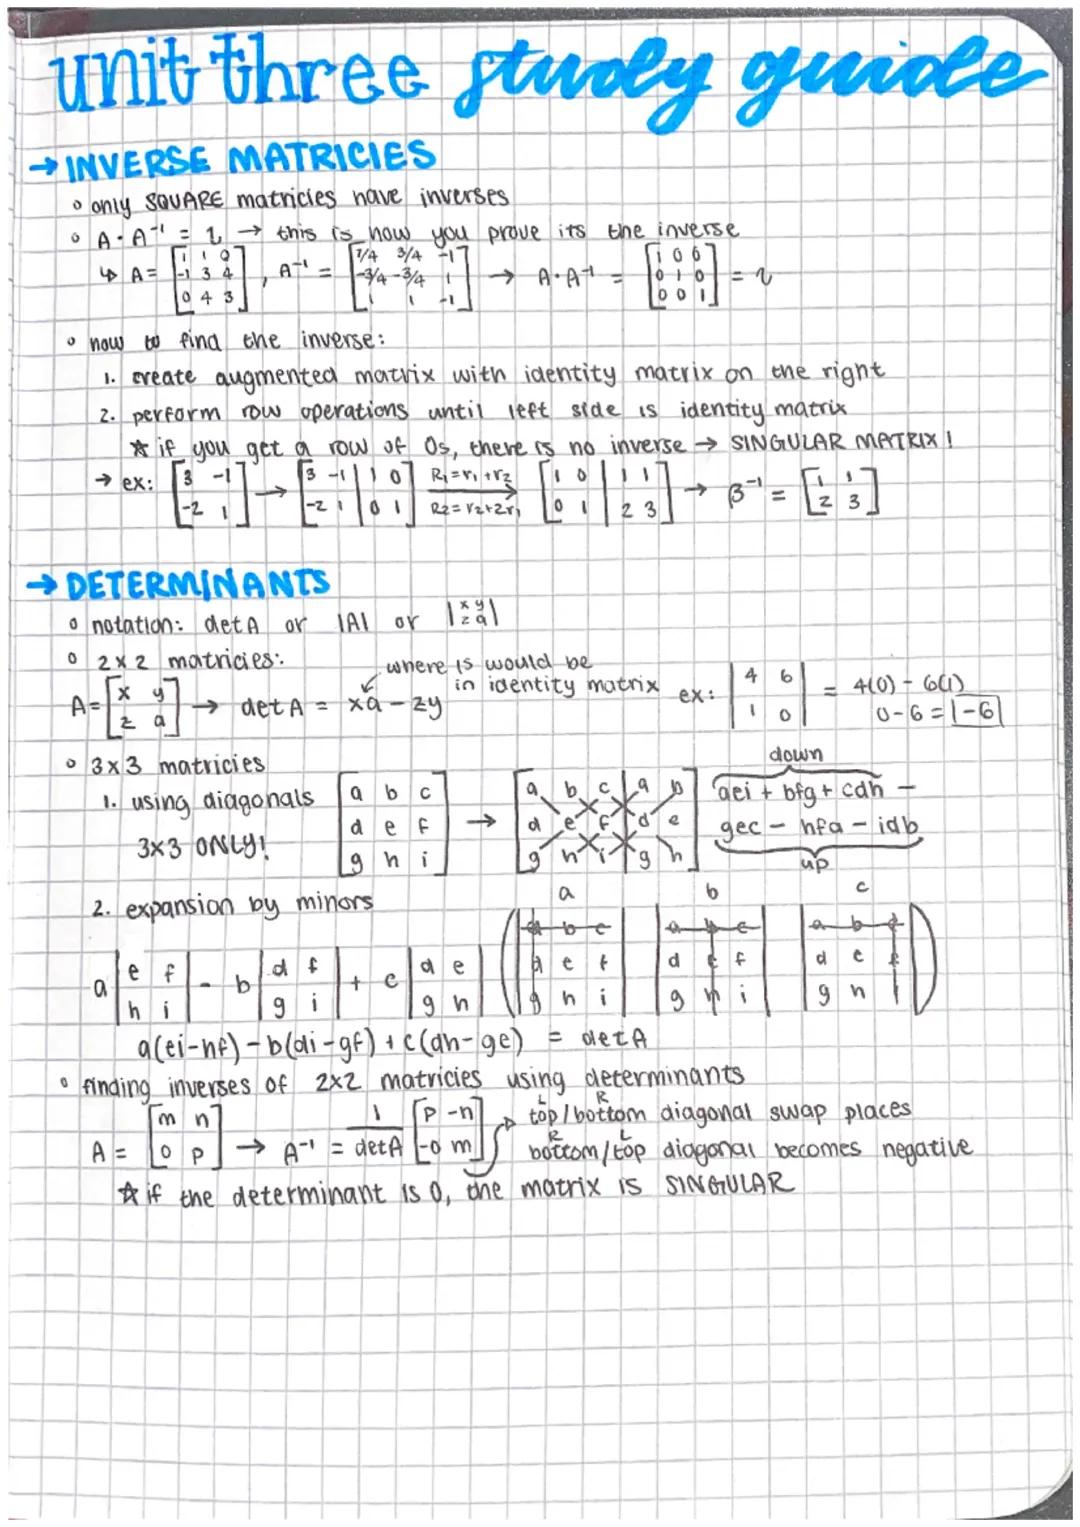 unit three study guide
→ INVERSE MATRICIES
∘ only SQUARE matricies have inverses
∘ A · A⁻¹ = I → this is how you prove its the inverse
↳ A = [1 1 0; -1 3 4; 0 4 3], A⁻¹ = [7/4 3/4 -1; -3/4 -3/4 1; 1 1 -1] → A·A⁻¹ = [1 0 0; 0 1 0; 0 0 1] = I
∘ how to find the inverse:
1. create augmented matrix with identity matrix on the right
2. perform row operations until left side is identity matrix
☆ if you get a row of 0s, there is no inverse → SINGULAR MATRIX!
→ ex: [3 -1; -2 1] → [3 -1 | 1 0; -2 1 | 0 1] R₁=r₁+r₂ R₂=r₂+2r₁ → [1 0 | 1 1; 0 1 | 2 3] → B⁻¹ = [1 1; 2 3]
→ DETERMINANTS
∘ notation: det A or |A| or |x y; z a|
∘ 2x2 matricies:
where 1s would be in identity matrix
A = [x y; z a] → det A = xa - zy
ex: |4 6; 1 0| = 4(0) - 6(1)
0 - 6 = -6
∘ 3x3 matricies
1. using diagonals
3x3 ONLY!
[a b c; d e f; g h i] → [a b c | a b; d e f | d e; g h i | g h]
down
aei + bfg + cdh -
gec - hfa - idb
up
2. expansion by minors
a b c
a |e f; h i| - b |d f; g i| + c |d e; g h| (|a b c; d e f; g h i| |a b c; d e f; g h i| |a b c; d e f; g h i|)
a(ei-hf) - b(di-gf) + c(dh-ge) = det A
∘ finding inverses of 2x2 matricies using determinants
A = [m n; o p] → A⁻¹ = 1/detA [p -n; -o m]
L R
top/bottom diagonal swap places
R L
bottom/top diagonal becomes negative
☆ if the determinant is 0, the matrix is SINGULAR